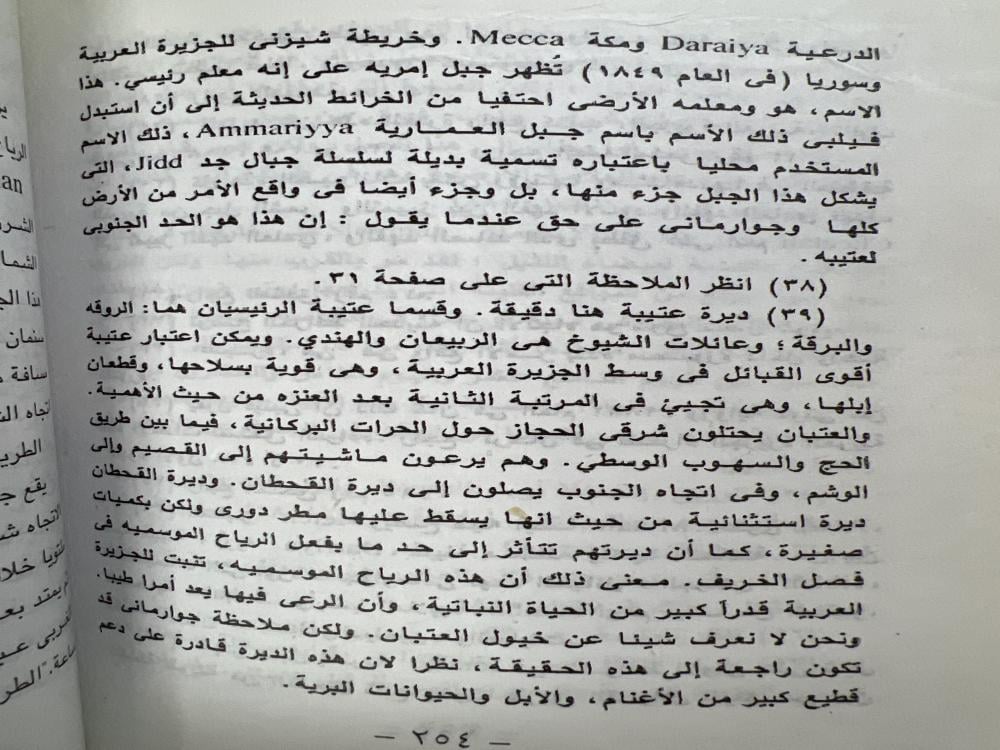 الدرعية Daraiya ومكة Mecca. وخريطة شيزنى للجزيرة العربية
وسوريا (فى العام ١٨٤٩) تُظهر جبل إمريه على إنه معلم رئيسي. هذا
الاسم، هو ومعلمه الأرضى احتفيا من الخرائط الحديثة إلى أن استبدل
فيلبى ذلك الأسم باسم جبل العمارية Ammariyya، ذلك الاسم
المستخدم محليا باعتباره تسمية بديلة لسلسلة جبال جد Jidd، التى
يشكل هذا الجبل جزء منها، بل وجزء أيضا فى واقع الأمر من الأرض
كلها وجوارمانى على حق عندما يقول : إن هذا هو الحد الجنوبى
لعتيبه.
(٣٨) انظر الملاحظة التى على صفحة ٣١.
(٣٩) ديرة عتيبة هنا دقيقة. وقسما عتيبة الرئيسيان هما: الروقه
والبرقة؛ وعائلات الشيوخ هى الربيعان والهندي. ويمكن اعتبار عتيبة
أقوى القبائل فى وسط الجزيرة العربية، وهى قوية بسلاحها، وقطعان
إبلها، وهى تجيئ فى المرتبة الثانية بعد العنزه من حيث الأهمية.
والعتبان يحتلون شرقى الحجاز حول الحرات البركانية، فيما بين طريق
الحج والسهوب الوسطي. وهم يرعون ماشيتهم إلى القصيم وإلى
الوشم، وفى اتجاه الجنوب يصلون إلى ديرة القحطان. وديرة القحطان
ديرة استثنائية من حيث انها يسقط عليها مطر دورى ولكن بكميات
صغيرة، كما أن ديرتهم تتأثر إلى حد ما بفعل الرياح الموسميه فى
فصل الخريف. معنى ذلك أن هذه الرياح الموسميه، تثبت للجزيرة
العربية قدرأ كبير من الحياة النباتية، وأن الرعى فيها يعد أمرا طيبا.
ونحن لا نعرف شيئا عن خيول العتبان. ولكن ملاحظة جوارمانى قد
تكون راجعة إلى هذه الحقيقة، نظرا لان هذه الديرة قادرة على دعم
قطيع كبير من الأغنام، والأبل والحيوانات البرية.
– ٢٥٤ –